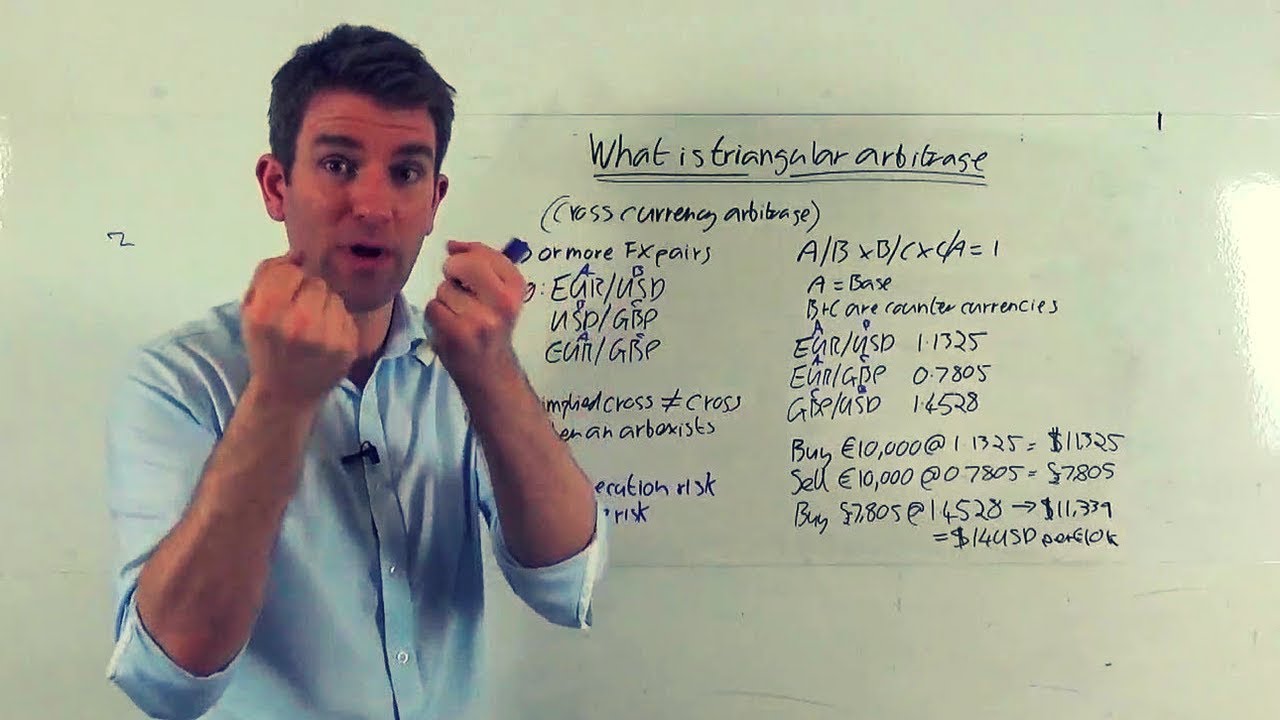 What is triangular arbitrage
(Cross currency arbitrage)
or more FX pairs
A B
: EUR/USD
B C
USD/GBP
A C
EUR/GBP
implied cross ≠ cross
an arb exists
ecution risk
risk
A/B × B/C × C/A = 1
A = Base
B+C are counter currencies
A B
EUR/USD 1.1325
A C
EUR/GBP 0.7805
C B
GBP/USD 1.4528
Buy €10,000 @ 1.1325 = $11,325
Sell €10,000 @ 0.7805 = £7,805
Buy £7,805 @ 1.4528 → $11,339
= $14 USD per €10k